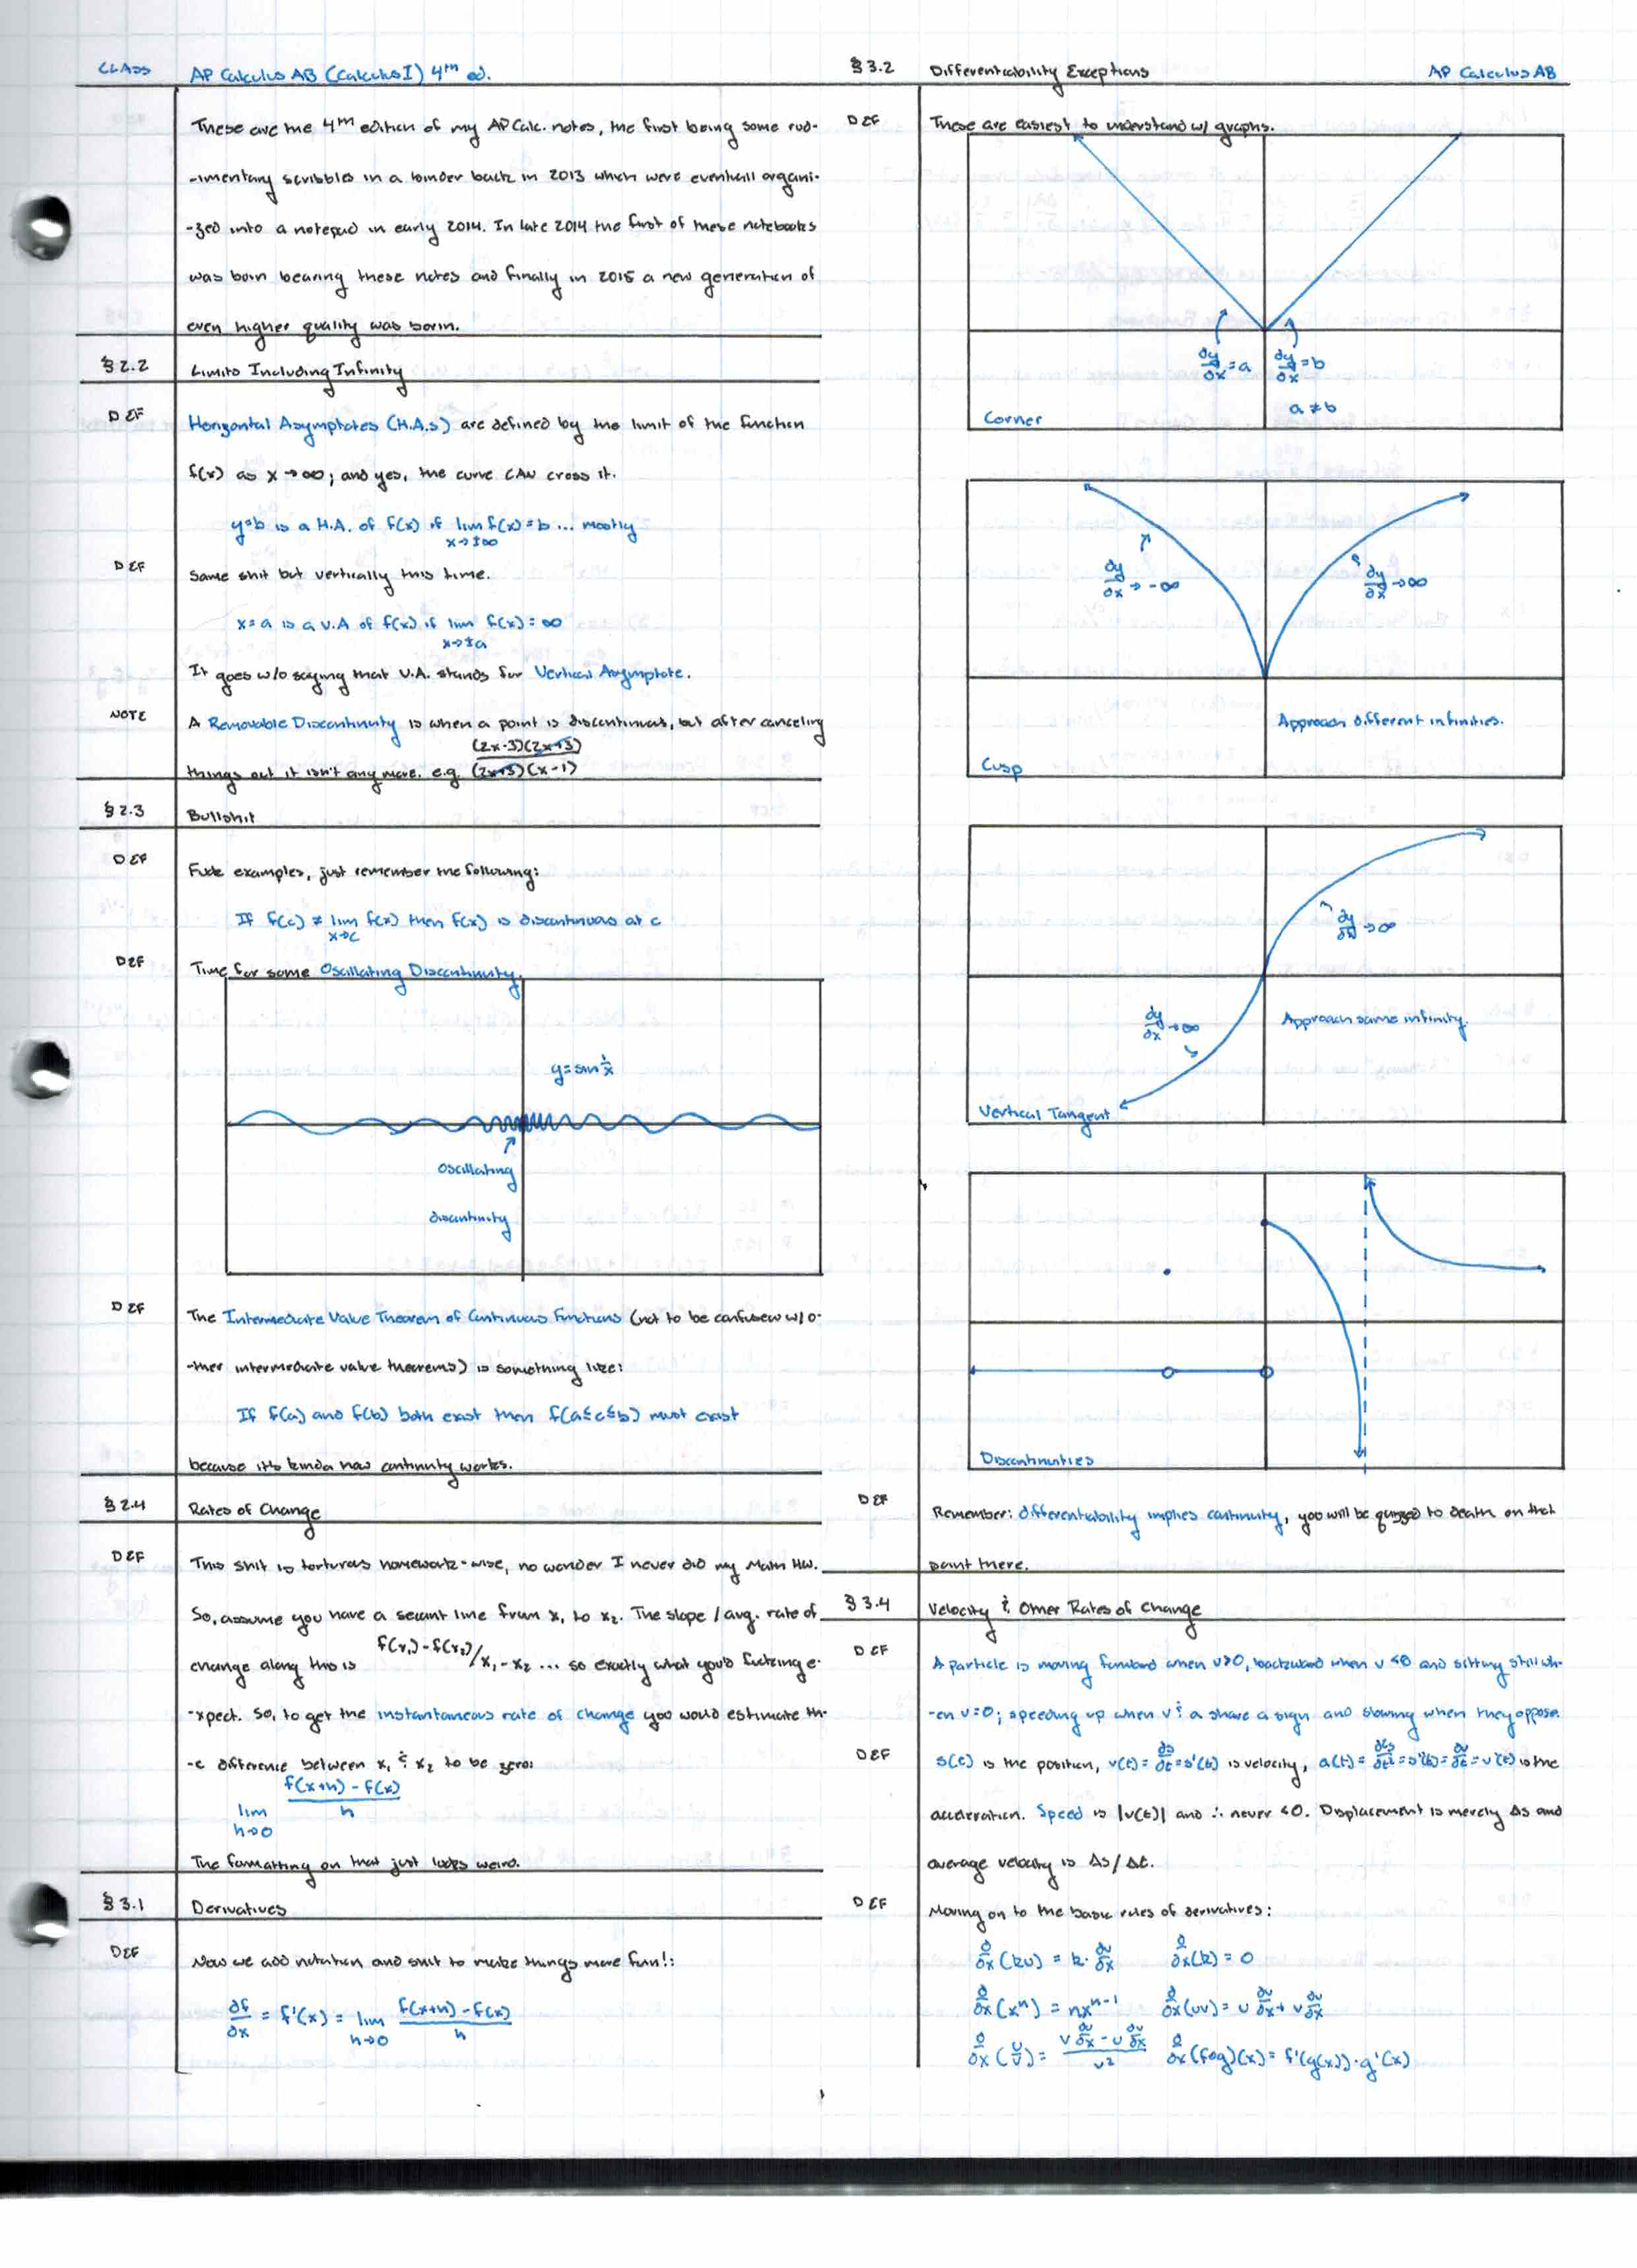 CLASS AP Calculus AB (Calculus I) 4th ed.
These are the 4th edition of my AP Calc. notes, the first being some rud-
-imentary scribbles in a binder back in 2013 which were eventuall organi-
-zed into a notepad in early 2014. In late 2014 the first of these notebooks
was born bearing these notes and finally in 2015 a new generation of
even higher quality was born.
§2.2 Limits Including Infinity
DEF Horizontal Asymptotes (H.A.s) are defined by the limit of the function
f(x) as x→∞; and yes, the curve CAN cross it.
y=b is a H.A. of f(x) if lim f(x)=b ... mostly
x→±∞
DEF Same shit but vertically this time.
x=a is a V.A of f(x) if lim f(x)=∞
x→±a
It goes w/o saying that V.A. stands for Vertical Asymptote.
NOTE A Removable Discontinuity is when a point is discontinuous, but after canceling
(2x-3)(2x+3)
things out it isn't any more. e.g. (2x+3)(x-1)
§2.3 Bullshit
DEF Fuck examples, just remember the following:
If f(c) ≠ lim f(x) then f(x) is discontinuous at c
x→c
DEF Time for some Oscillating Discontinuity.
y=sin 1/x
Oscillating
discontinuity
DEF The Intermediate Value Theorem of Continuous Functions (not to be confusew w/ o-
-ther intermediate value theorems) is something like:
If f(a) and f(b) both exist then f(a≤c≤b) must exist
because it's kinda how continuity works.
§2.4 Rates of Change
DEF This shit is torturous homework-wise, no wonder I never did my Math HW.
So, assume you have a secant line from x₁ to x₂. The slope / avg. rate of
change along this is f(x₁)-f(x₂)/x₁-x₂ ... so exactly what you'd fucking e-
-xpect. So, to get the instantaneous rate of change you would estimate th-
-e difference between x₁ & x₂ to be zero:
f(x+h)-f(x)
lim h
h→0
The formatting on that just looks weird.
§3.1 Derivatives
DEF Now we add notation and shit to make things more fun!:
df/dx = f'(x) = lim f(x+h)-f(x)/h
h→0
§3.2 Differentiability Exceptions AP Calculus AB
DEF These are easiest to understand w/ graphs.
dy/dx=a dy/dx=b
a≠b
Corner
dy/dx→-∞ dy/dx→∞
Approach different infinities.
Cusp
dy/dx→∞
dy/dx→∞ Approach same infinity.
Vertical Tangent
Discontinuities
DEF Remember: differentiability implies continuity, you will be quizzed to death on that
point there.
§3.4 Velocity & Other Rates of Change
DEF A particle is moving forward when v>0, backward when v<0 and sitting still wh-
-en v=0; speeding up when v & a share a sign and slowing when they oppose.
DEF s(t) is the position, v(t)=ds/dt=s'(t) is velocity, a(t)=d²s/dt²=s"(t)=dv/dt=v'(t) is the
acceleration. Speed is |v(t)| and ∴ never <0. Displacement is merely Δs and
average velocity is Δs/Δt.
DEF Moving on to the basic rules of derivatives:
d/dx(ku)=k·du/dx d/dx(k)=0
d/dx(xⁿ)=nxⁿ⁻¹ d/dx(uv)=u dv/dx+v du/dx
d/dx(u/v)=v du/dx-u dv/dx/v² d/dx(f∘g)(x)=f'(g(x))·g'(x)
1